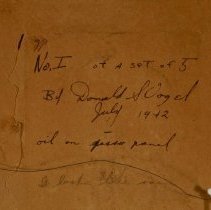 No. I of a set of 5
By Donald S. Vogel
July 1942
oil on gesso panel